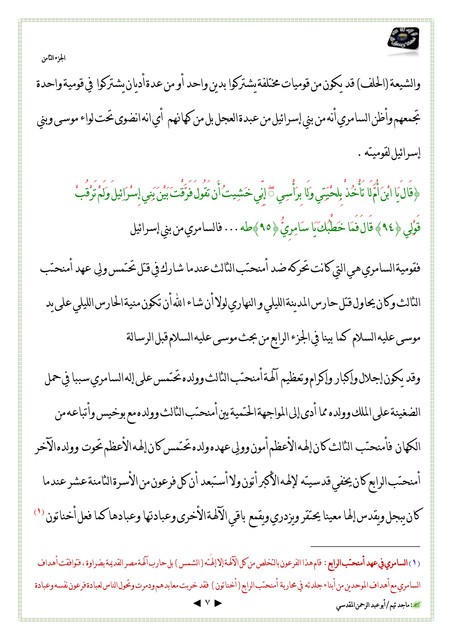 الجزء الثامن
والشيعة (الحلف) قد يكون من قوميات مختلفة يشتركوا بدين واحد أو من عدة أديان يشتركوا في قومية واحدة
تجمعهم وأظن السامري أنه من بني إسرائيل من عبدة العجل بل من كهانهم أي انه انضوى تحت لواء موسى وبني
إسرائيل لقوميته .
﴿قَالَ يَا ابْنَ أُمَّ لَا تَأْخُذْ بِلِحْيَتِي وَلَا بِرَأْسِي ۖ إِنِّي خَشِيتُ أَنْ تَقُولَ فَرَّقْتَ بَيْنَ بَنِي إِسْرَائِيلَ وَلَمْ تَرْقُبْ
قَوْلِي ﴿٩٤﴾ قَالَ فَمَا خَطْبُكَ يَا سَامِرِيُّ ﴿٩٥﴾ طه ... فالسامري من بني إسرائيل
فقومية السامري هي التي كانت تحركه ضد أمنحتب الثالث عندما شارك في قتل تحتمس ولي عهد أمنحتب
الثالث وكان يحاول قتل حارس المدينة الليلي و النهاري لولا أن شاء الله أن تكون منية الحارس الليلي على يد
موسى عليه السلام كما بينا في الجزء الرابع من بحث موسى عليه السلام قبل الرسالة
وقد يكون إجلال وإكبار وإكرام وتعظيم آلهة أمنحتب الثالث وولده تحتمس على إله السامري سببا في حمل
الضغينة على الملك وولده مما أدى إلى المواجهة الحتمية بين أمنحتب الثالث وولده مع بوخيس وأتباعه من
الكهان فأمنحتب الثالث كان إلهه الأعظم أمون وولي عهده ولده تحتمس كان إلهه الأعظم تحوت وولده الآخر
أمنحتب الرابع كان يخفي قدسيته لإلهه الأكبر أتون ولا أستبعد أن كل فرعون من الأسرة الثامنة عشر عندما
كان يبجل ويقدس إلها معينا يحتقر ويزدري ويقمع باقي الآلهة الأخرى وعبادتها وعبادها كما فعل أخناتون (١)
(١) السامري في عهد أمنحتب الرابع : قام هذا الفرعون بالتخلص من كل الآلهة إلا إلهه ( الشمس ) بل حارب آلهة مصر القديمة بضراوة ، فتوافقت أهداف
السامري مع أهداف الموحدين من أبناء جلدته في محاربة أمنحتب الرابع (أخناتون) فقد خربت معابدهم ودمرت وتحول الناس لعبادة فرعون نفسه وعبادة
: ماجد تيم / أبو عبد الرحمن المقدسي
٧